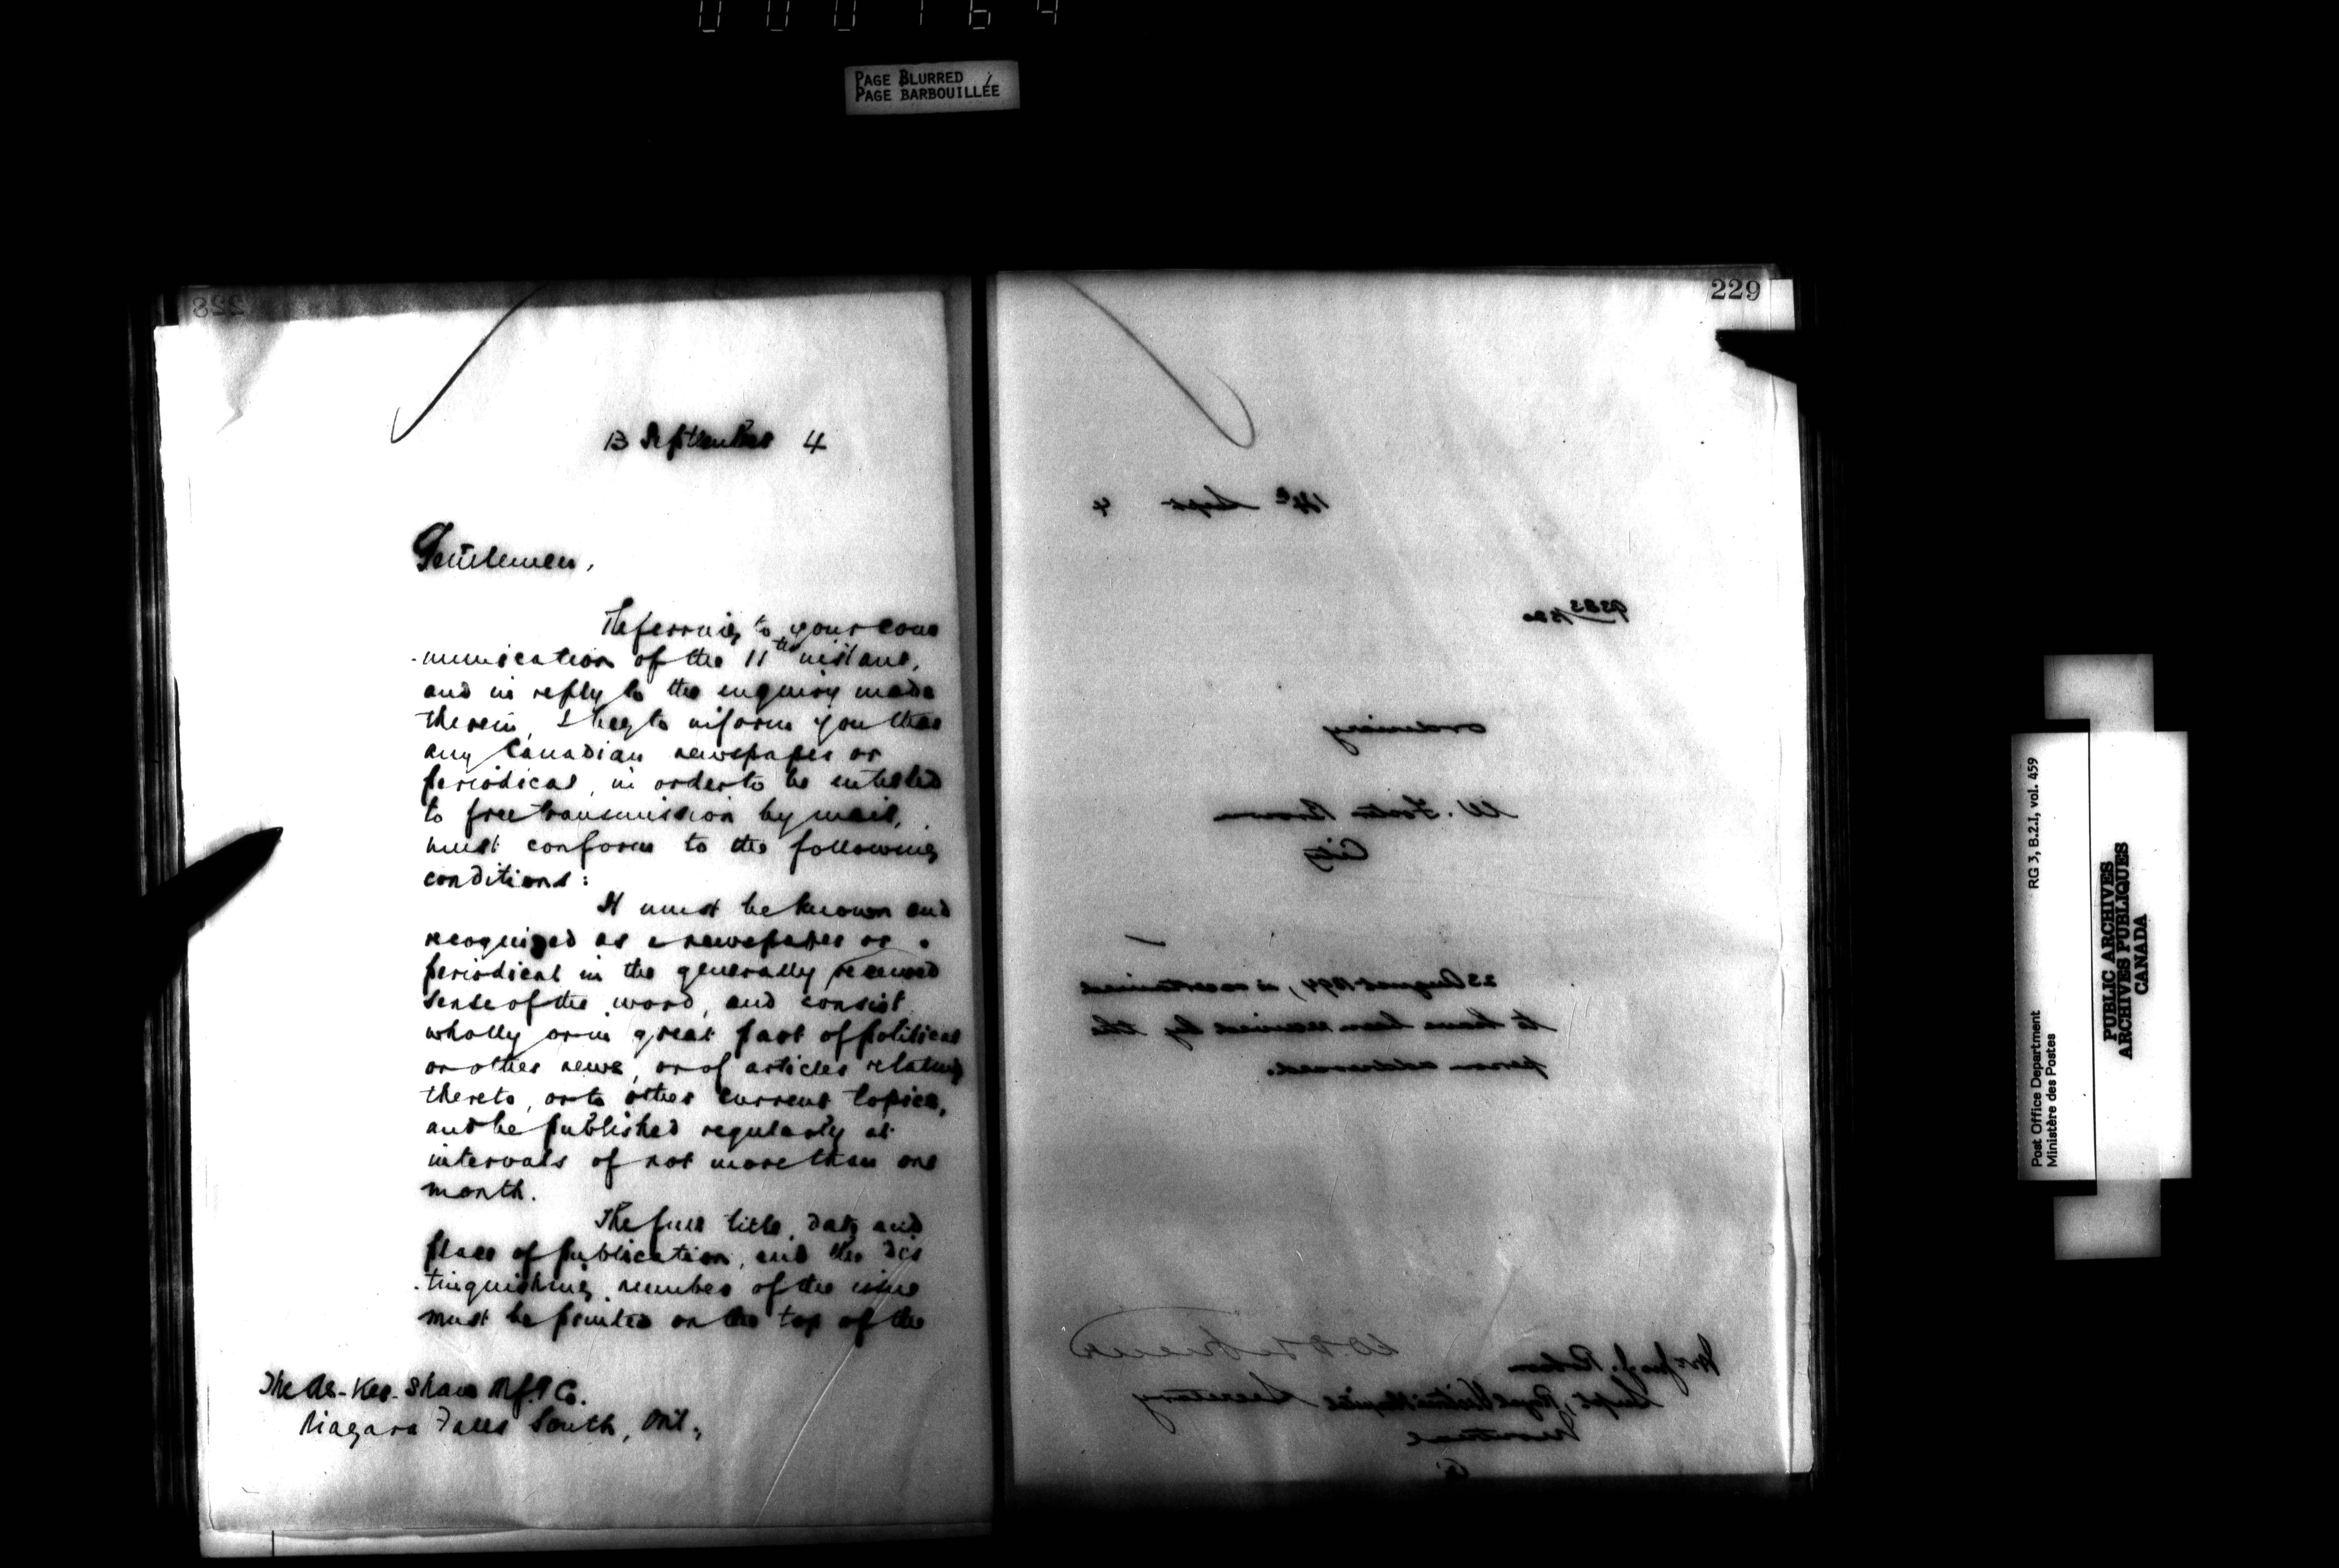 000164
PAGE BLURRED
PAGE BARBOUILLÉE
228
13 September 4
Gentlemen,
Referring to your com
-munication of the 11th instant,
and in reply to the inquiry made
therein, I beg to inform you that
any Canadian newspaper or
periodical, in order to be entitled
to free transmission by mail,
must conform to the following
conditions:
It must be known and
recognized as a newspaper or a
periodical in the generally received
sense of the word, and consist
wholly or in great part of political
or other news, or of articles relating
thereto, or to other current topics,
and be published regularly at
intervals of not more than one
month.
The full title, date and
place of publication, and the dis
-tinguishing number of the issue
must be printed on the top of the
The Mfg Co.
Niagara Falls South, Ont.,
229
14th Sept 4
ordinary
W. Foster Brown
City
25 August 1894, is ascertained
to have been received by the
person addressed.
Secretary
Mr Jno. J. Robson
Supt, Royal Victoria Hospital
Montreal
RG 3, B.2.I, vol. 459
Post Office Department
Ministère des Postes
PUBLIC ARCHIVES
ARCHIVES PUBLIQUES
CANADA